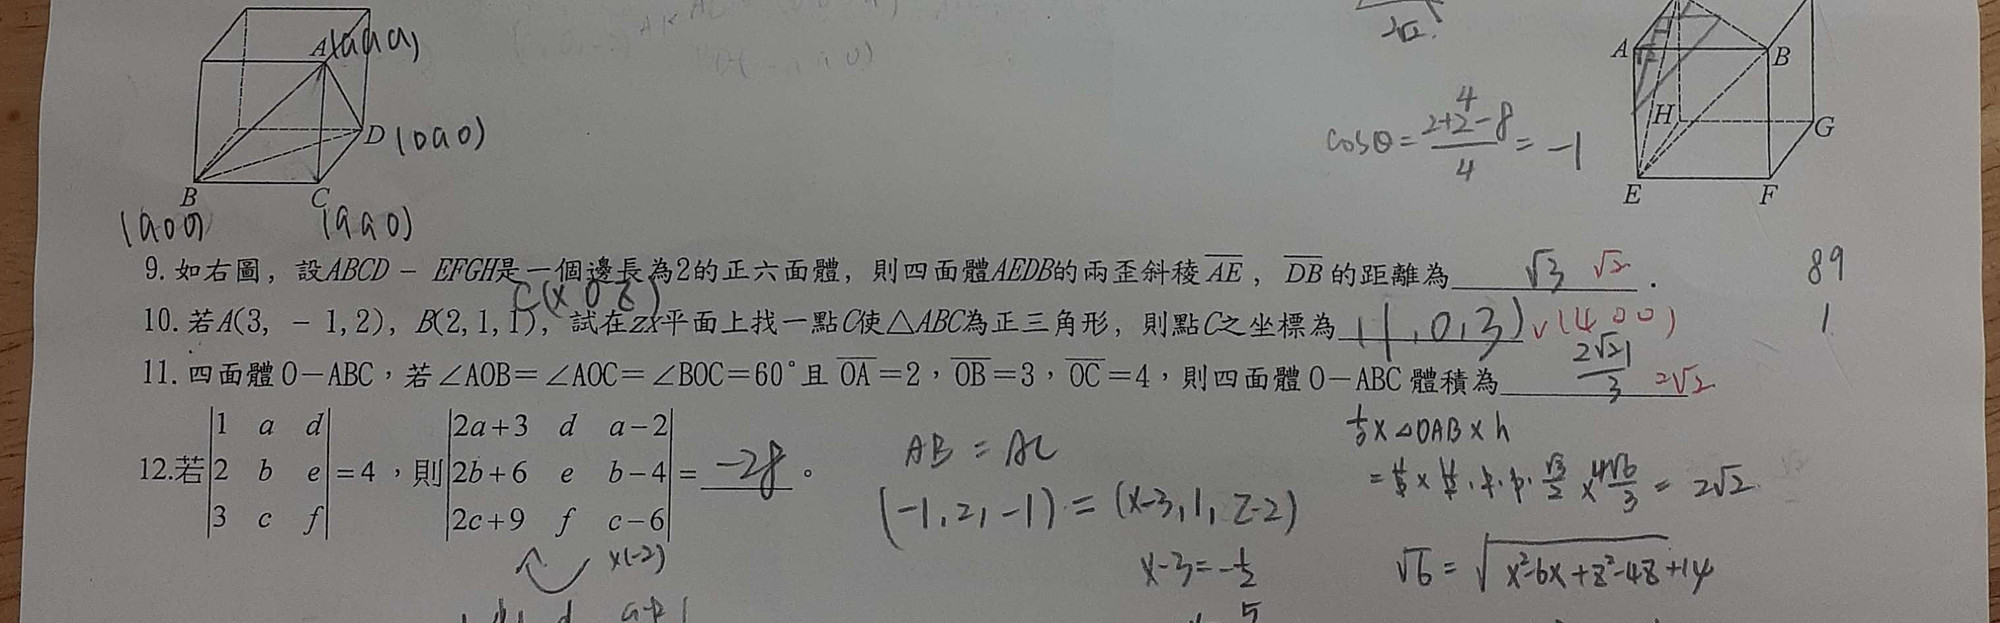 A(a a a)
D(0 a 0)
B
(a 0 0)
C
(a a 0)
2√2
cosθ = 2+2-8 / 4 = -1
4
A
B
H
G
E
F
9. 如右圖，設ABCD－EFGH是一個邊長為2的正六面體，則四面體AEDB的兩歪斜稜AE，DB的距離為 √3 √2 .
89
C(x 0 z)
10. 若A(3, －1, 2)，B(2, 1, 1)，試在zx平面上找一點C使△ABC為正三角形，則點C之坐標為 (1, 0, 3) ∨ (4 0 0)
1
11. 四面體O－ABC，若∠AOB＝∠AOC＝∠BOC＝60°且OA＝2，OB＝3，OC＝4，則四面體O－ABC體積為 2√21/3 2√2
12.若|1 a d; 2 b e; 3 c f|=4，則|2a+3 d a-2; 2b+6 e b-4; 2c+9 f c-6|= -28 。
x(-2)
AB = AC
(-1, 2, -1) = (x-3, 1, z-2)
x-3=-1/2
5
1/3 x △OAB x h
√3/2 x 4√6/3 = 2√2
√6 = √x²-6x+z²-4z+14